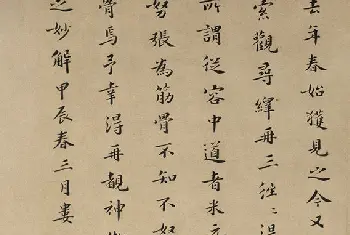 去年春始獲見之今又
索觀尋繹再三往〻得
所謂從容中道者米元
努張為筋骨不知不努
骨焉予幸得再覩神
之妙解甲辰春三月婁